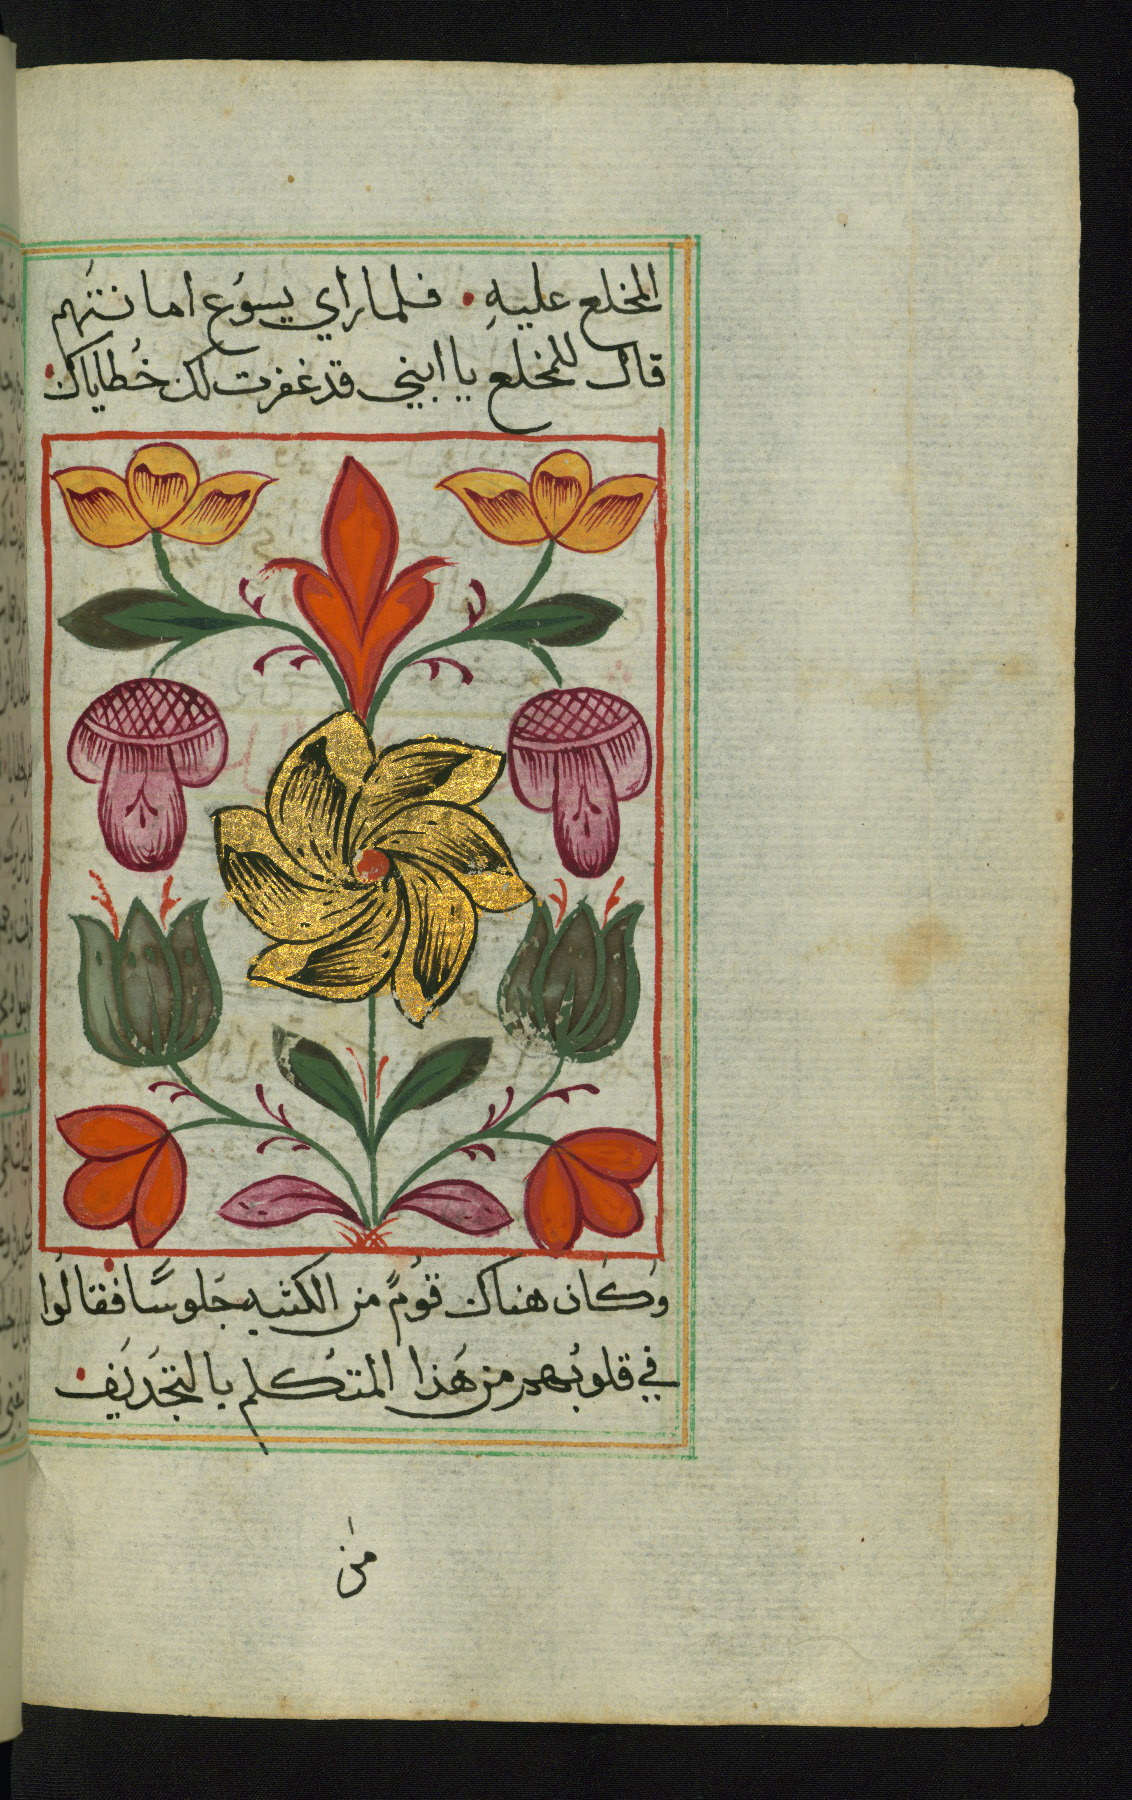 المخلع عليهِ • فلما راي يسوُع امانتَهم
قال للمخلع يا ابني قد غفرت لك خُطاياك •
وَكَان هناك قوُمً من الكتبه جَلوسًا فقالُوا
في قلوبُهم من هَذا المتَكلم بالتجَديَف •
من